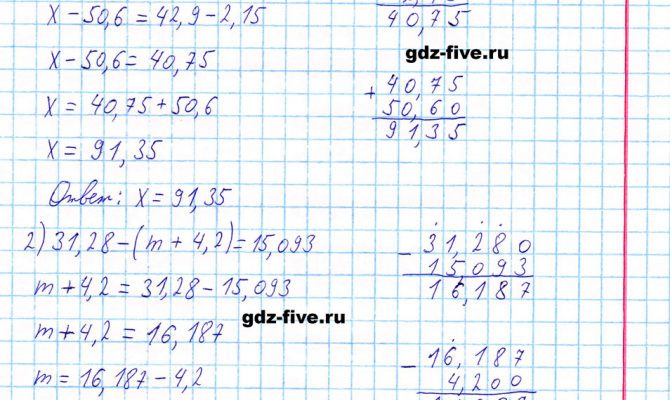 x - 50,6 = 42,9 - 2,15
40,75
gdz-five.ru
x - 50,6 = 40,75
x = 40,75 + 50,6
+ 40,75
50,60
91,35
x = 91,35
Ответ: x = 91,35
2) 31,28 - (m + 4,2) = 15,093
m + 4,2 = 31,28 - 15,093
- 31,280
15,093
16,187
gdz-five.ru
m + 4,2 = 16,187
m = 16,187 - 4,2
- 16,187
4,200